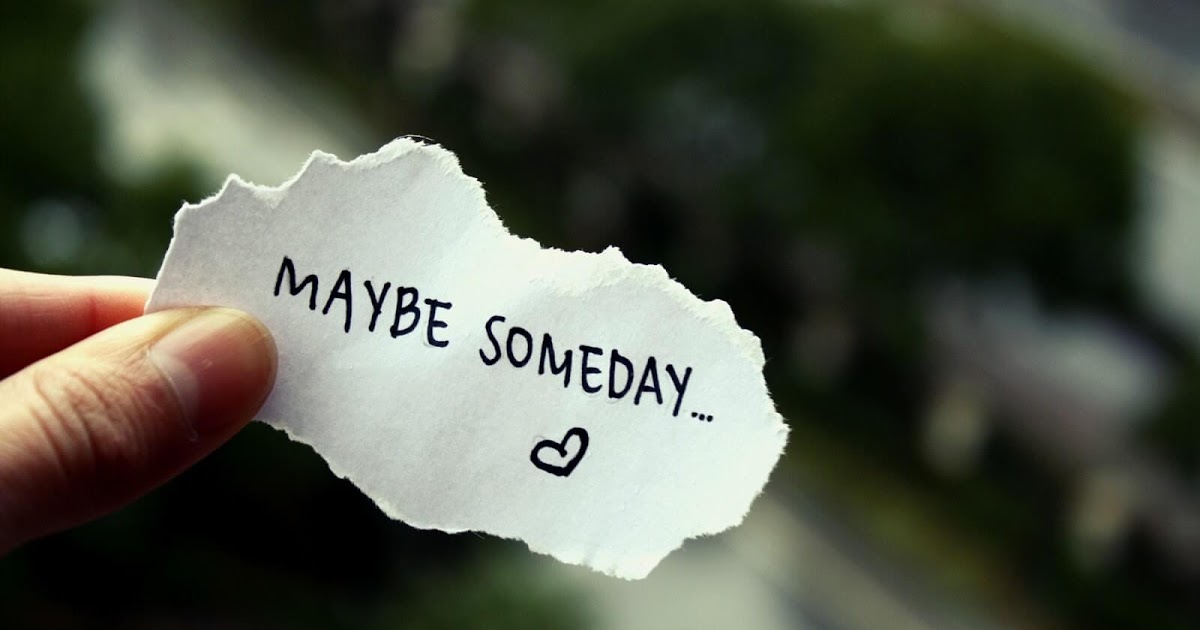 MAYBE SOMEDAY...